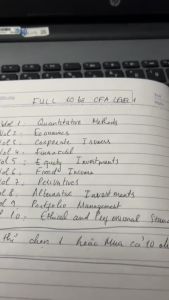 FULL 10 bộ CFA LEVEL 1
Vol 1. Quantitative Methods
Vol 2. Economics
Vol 3. Corporate Issuers
Vol 4. Financial
Vol 5. Equity Investments
Vol 6. Fixed Income
Vol 7. Derivatives
Vol 8. Alternative Investments
Vol 9. Portfolio Management
Vol 10. Ethical and Professional Stan
chọn 1 hoặc Mua cả 10